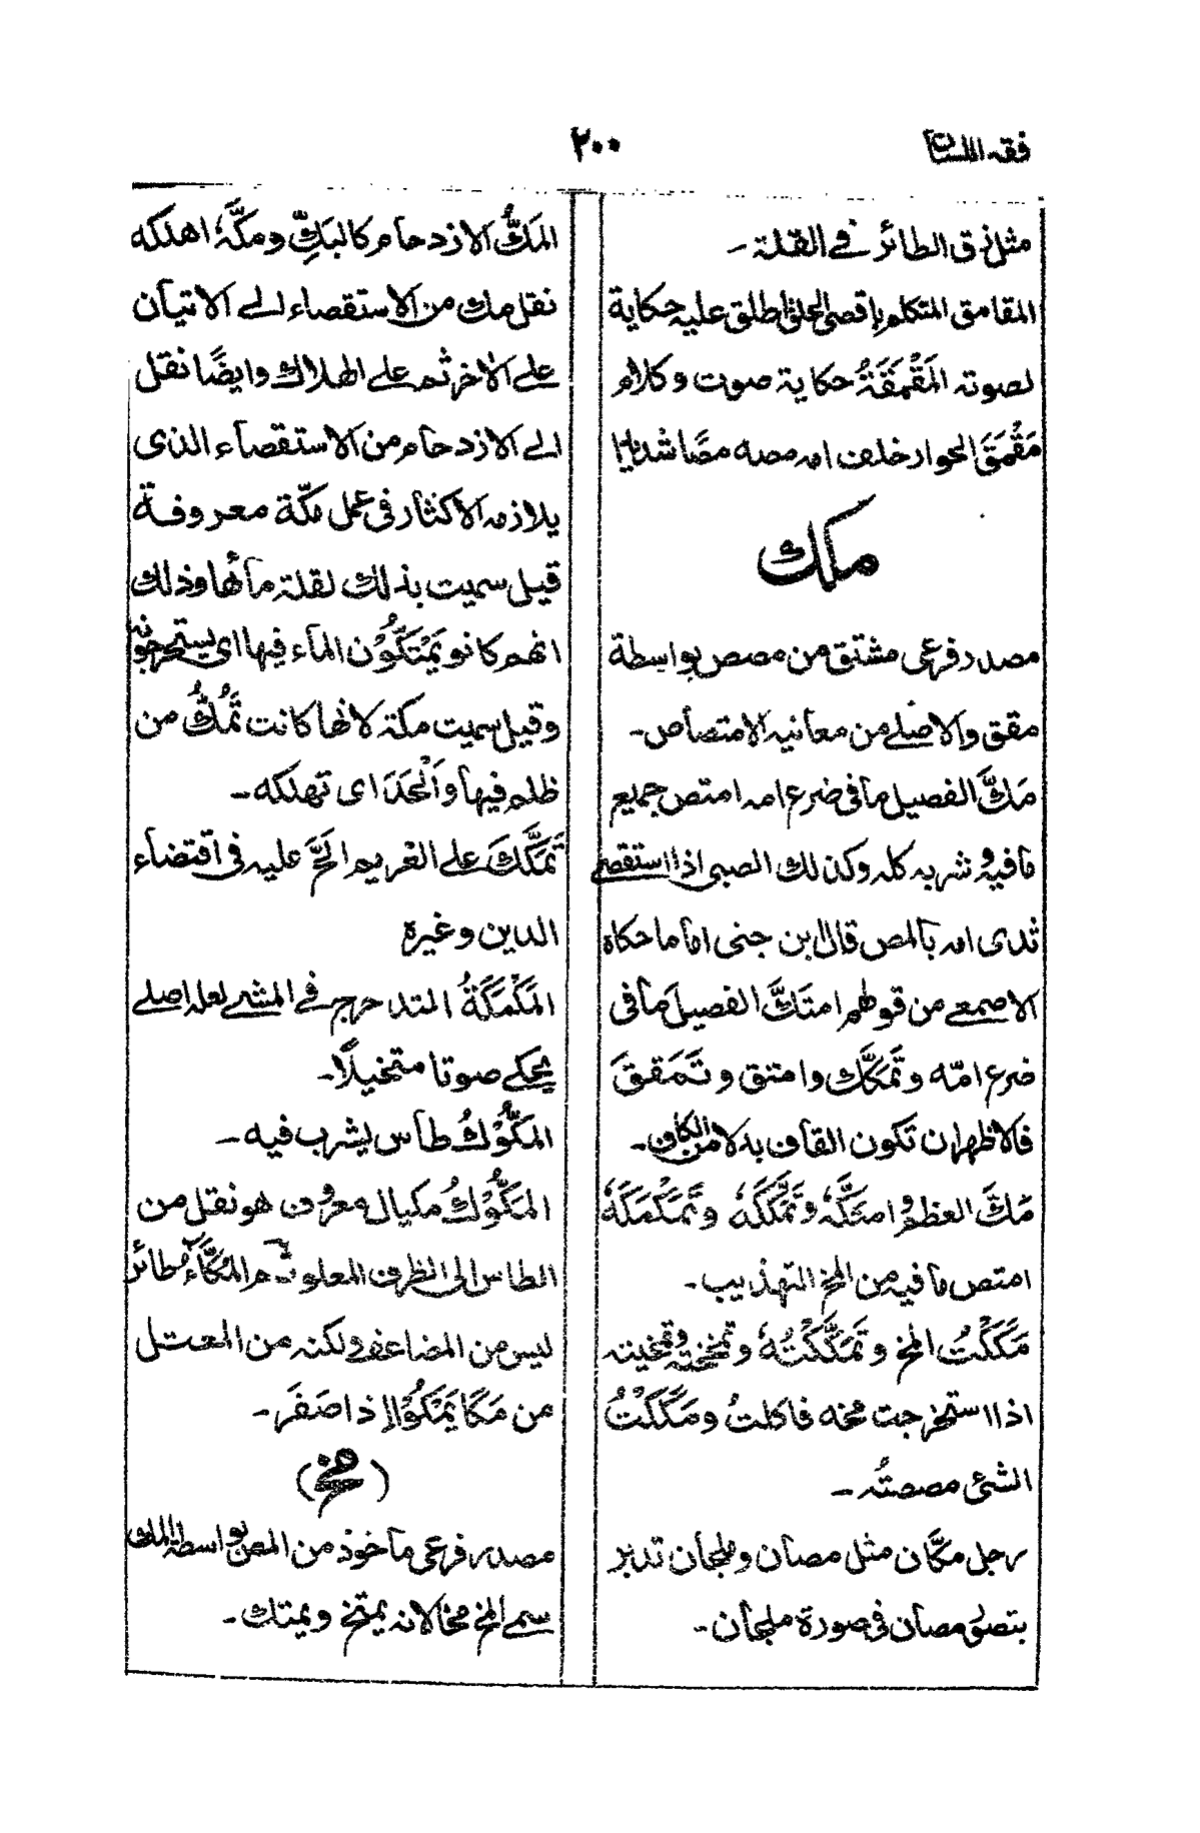 فقه اللسان
٢٠٠
مثل زق الطائر في القلة۔
المقامق المتكلم باقصى الحلق اطلق عليه حكاية
لصوته المَقْمَقَةُ حكاية صوت وكلام
مَقْمَقَ الحوار خلف امه مصه مصًّا شديدًا
مكك
مصدر فرعى مشتق من مصص بواسطة
مقق والاصلے من معانيه الامتصاص۔
مَكَّ الفصيل ما فى ضرع امه امتص جميع
ما فيه وشربه كله وكذلك الصبى اذا استقصے
ثدى امه بالمص قال ابن جنى اما ما حكاه
الاصمعے من قولهم امتَكَّ الفصيل ما فى
ضرع امّه وتَمَكَّك وامتق وتَمَقَّقَ
فالاظهر ان تكون القاف بدلا من الكاف۔
مَكَّ العظم وامتَكَّهٗ وتَمَكَّكَهٗ وتَمَكْمَكَهٗ
امتص ما فيه من المخ التهذيب۔
مَكَّكْتُ المخ وتَمَكَّكْتُهٗ وتمخخته وتمخيته
اذا استخرجت مخه فاكلتُ ومَكَّكْتُ
الشئ مصصتُه۔
رجل مكَّان مثل مصان وملجان تدبر
بتصق مصان فى صورة ملجان۔
المَكُّ الازدحام كالبَكِّ ومكَّهٗ اهلكه
نقل مك من الاستقصاء الے الاتيان
علے الاخر ثم علے الهلاك وايضًا نقل
الے الازدحام من الاستقصاء الذى
يلازمه الاكثار فى عمل مكّة معروفة
قيل سميت بذلك لقلة مائها وذلك
انهم كانو يَمْتَكُّوْن الماء فيها اى يستخرجونه
وقيل سميت مكة لانها كانت تَمُكُّ من
ظلم فيها وَاَلْحَدَ اى تهلكه۔
تَمَكَّكَ علے الغريم الحَّ عليه فى اقتضاء
الدين وغيره
المَكْمَكَةُ التدحرج فے المشے لعله اصلے
يحكے صوتا متخيلًا۔
المَكُّوْكُ طاس يشرب فيه۔
المَكُّوْكُ مكيال معروف هو نقل من
الطاس الى الظرف المعلوم المُكَّاءُ طائر
ليس من المضاعف ولكنه من المعتل
من مَكَا يَمْكُوْا اذا صَفَرَ۔
(مخخ)
مصدر فرعى ماخوذ من المص بواسطة المك
سمے المخ مخا لانه يمتخ ويمتك۔